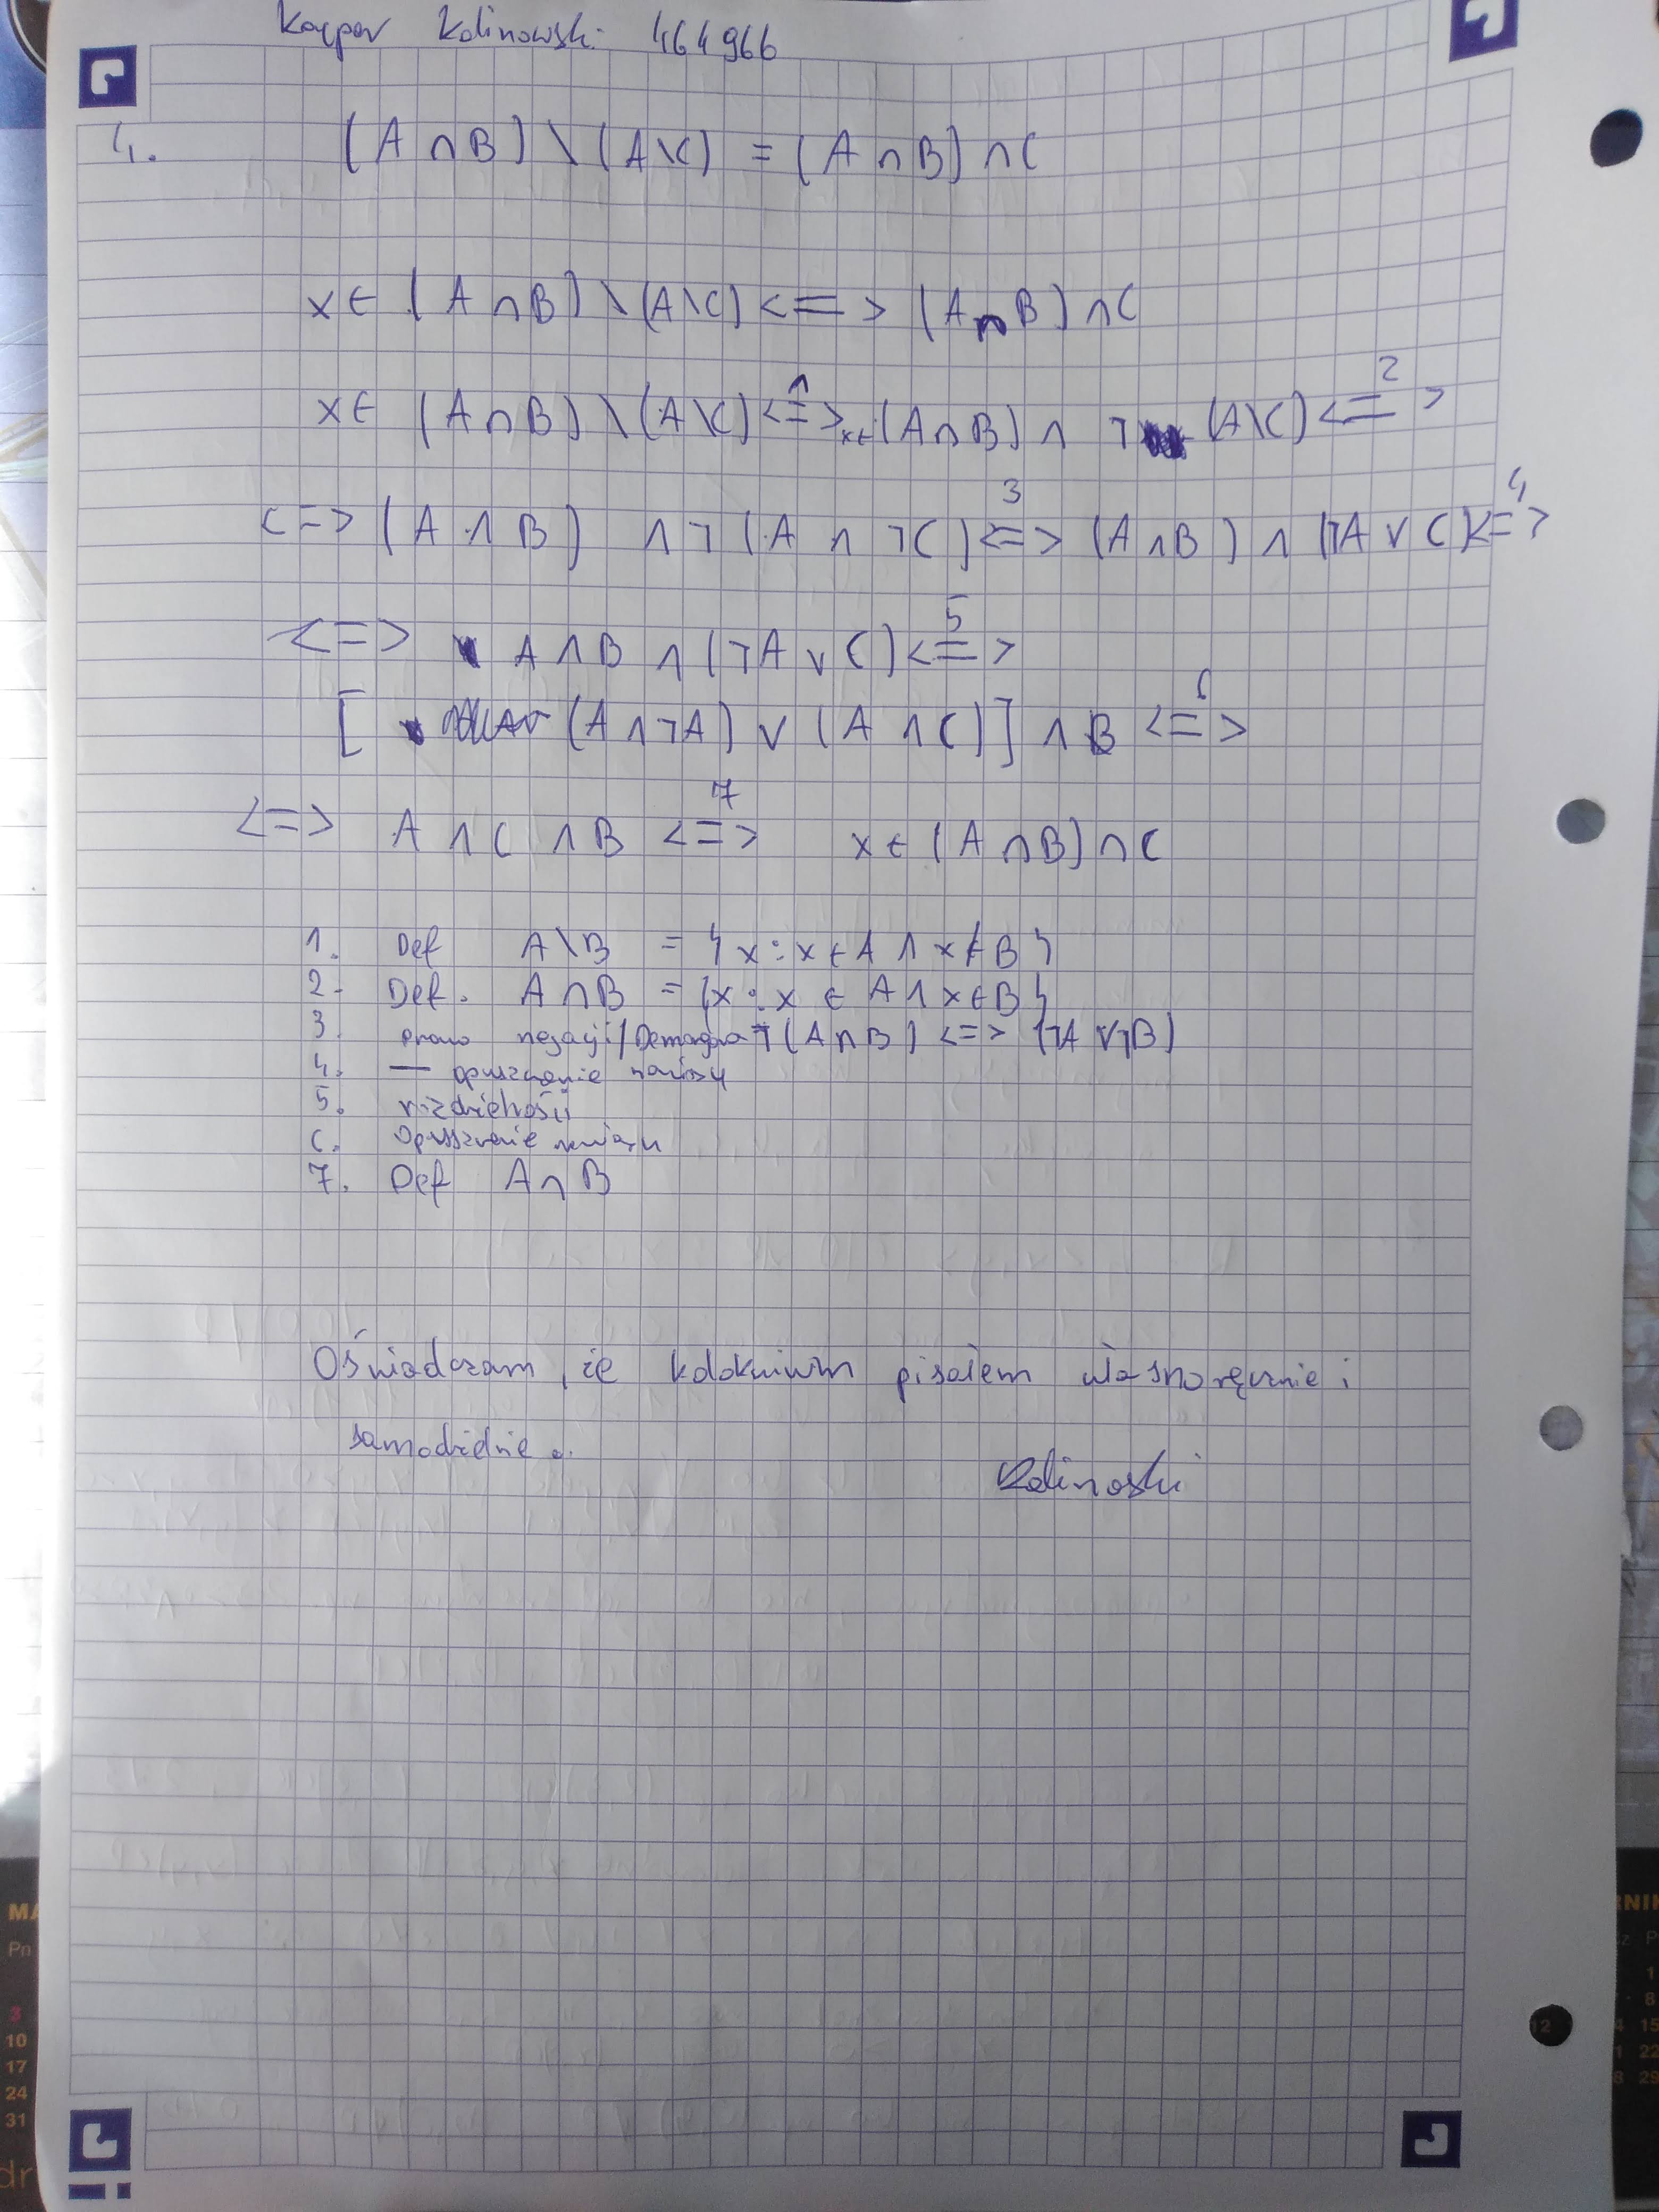 Kacper Kalinowski 464966
4. (A ∩ B) \ (A\C) = (A ∩ B) ∩ C
x ∈ (A ∩ B) \ (A\C) <=> (A ∩ B) ∩ C
x ∈ (A ∩ B) \ (A\C) <=>¹ x∈ (A ∩ B) ∧ ¬ (A\C) <=>²
<=> (A ∧ B) ∧ ¬ (A ∧ ¬C) <=>³ (A ∧ B) ∧ (¬A ∨ C) <=>⁴
<=> A ∧ B ∧ (¬A ∨ C) <=>⁵
[ (A ∧ ¬A) ∨ (A ∧ C)] ∧ B <=>⁶
<=> A ∧ C ∧ B <=>⁷ x ∈ (A ∩ B) ∩ C
1. Def A\B = {x : x ∈ A ∧ x ∉ B}
2. Def. A∩B = {x : x ∈ A ∧ x ∈ B}
3. prawo negacji/Demorgana ¬(A ∩ B) <=> (¬A ∨ ¬B)
4. — opuszczenie nawiasu
5. rozdzielności
6. Opuszczenie nawiasu
7. Def A∩B
Oświadczam, że kolokwium pisałem własnoręcznie i
samodzielnie.
Kalinoski
MA
Pn
3
10
17
24
31
12